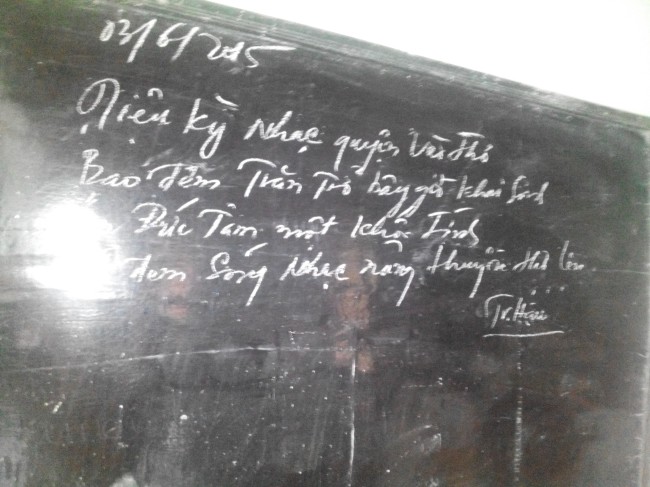 03/6/2015
Diệu kỳ nhạc quyện vào thơ
Bao đêm Trăn Trở bây giờ khai Sinh
Đức Tâm một khúc Tình
đem Sóng Nhạc nâng thuyền thơ lên
Tr. Hậu